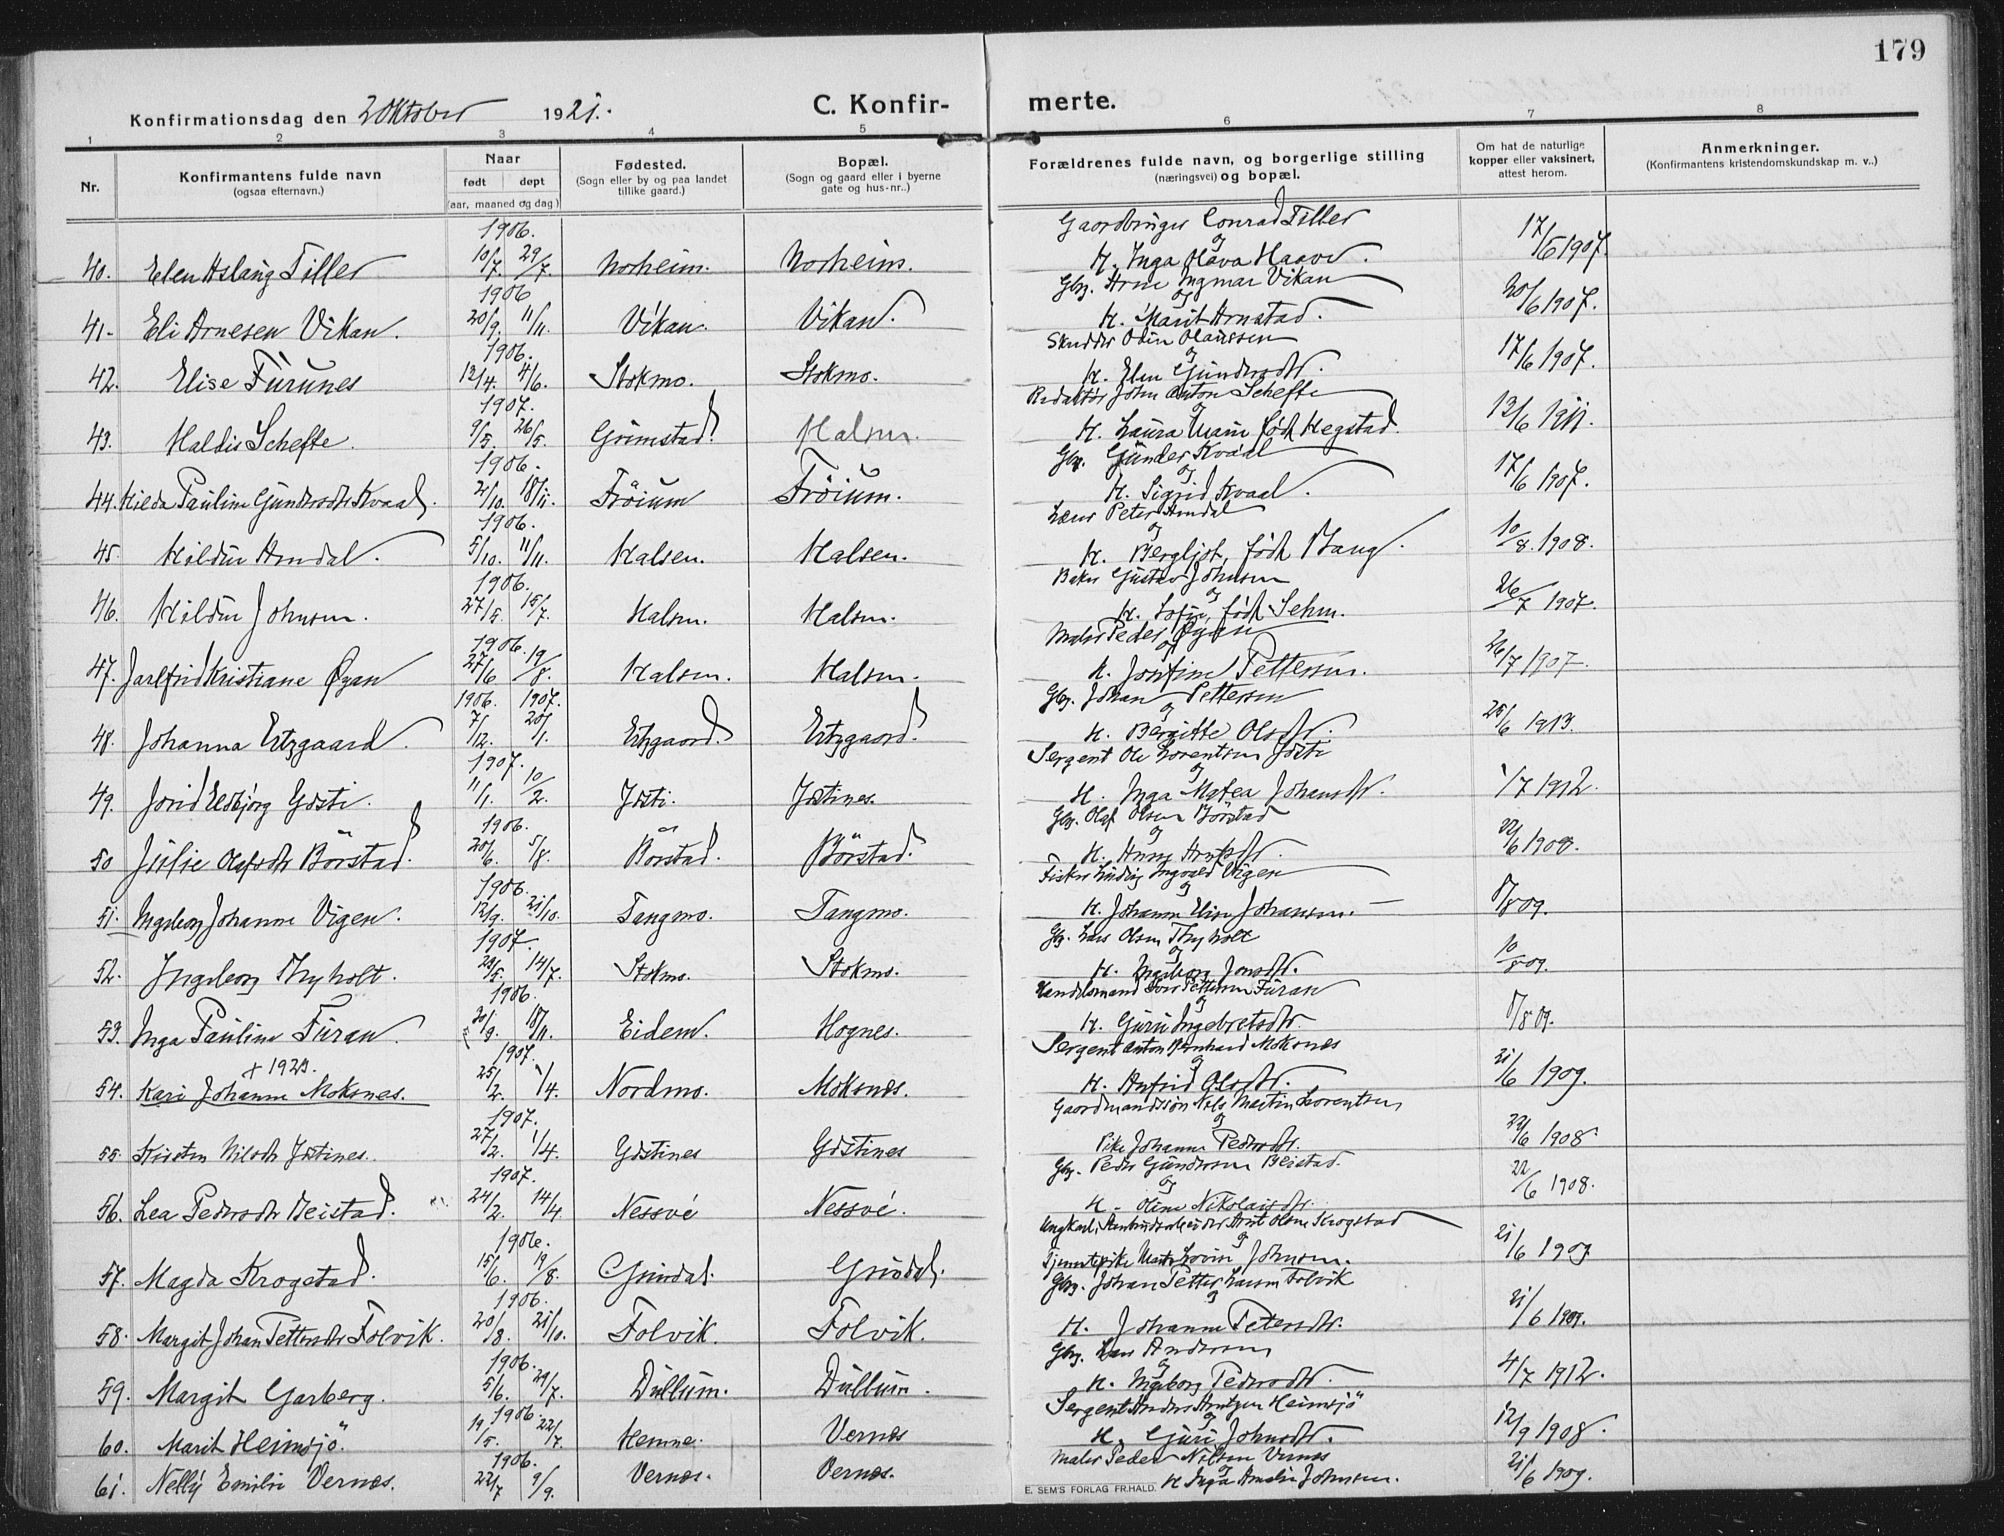 179
Konfirmationsdag den 2 Oktober 1921. C. Konfir- merte.
1 2 3 4 5 6 7 8
Nr. Konfirmantens fulde navn (ogsaa efternavn.) Naar født døpt (aar, maaned og dag) Fødested. (Sogn eller by og paa landet tillike gaard.) Bopæl. (Sogn og gaard eller i byerne gate og hus-nr..) Forældrenes fulde navn, og borgerlige stilling (næringsvei) og bopæl. Om hat de naturlige kopper eller vaksinert, attest herom. Anmerkninger. (Konfirmantens kristendomskundskap m. v..)
1906. Gaardbruger Conrad Tiller
40. Elen Aslaug Tiller 10/7 29/7. Norheim. Norheim. og H. Inga Olava Haave. 17/6 1907.
1906 Gbr. Arne Ingmar Vikan
41. Eli Arnesen Vikan. 20/9. 11/11. Vikan. Vikan. og H. Marit Arnstad. 20/6 1907.
1906. Odin Olaussen
42. Elise Furunes 12/4. 4/6. Stokmo. Stokmo. og H. Elen Gundersdtr. 17/6 1907.
1907. Redaktør John Anton Schefte
43. Haldis Schefte. 9/5. 26/5. Grimstad. Halsen. og H. Laura Marie født Hegstad. 12/6 1911.
1906. Gbr. Gunder Kvaal
44. Hilda Pauline Gundersdtr Kvaal. 2/10. 18/11. Fröium Fröium. og H. Sigrid Kvaal. 17/6 1907.
1906. Lærer Peter Arndal
45. Hildur Arndal. 5/10. 11/11. Halsen. Halsen. og H. Bergljot, født Bang. 10/8. 1908.
1906. Baker Gustav Johnsen
46. Hildur Johnsen. 27/5. 15/7. Halsen. Halsen. og H. Sofie, født Sehm. 26/7 1907.
1906. Maler Peder Øyan
47. Jarlfrid Kristiane Øyan 27/6 19/8. Halsen. Halsen. og H. Josefine Pettersen. 26/7 1907.
1906. 1907. Gbr. Johan Pettersen
48. Johanna Ertzgaard. 7/12. 20/1. Ertzgaard. Ertzgaard. og H. Bergitte Olsdtr. 25/6 1913.
1907. Sergent Ole Lorentsen Ydsti
49. Jorid Elsbjörg Ydsti. 11/1. 10/2. Ydsti. Ydstines. og H. Inga Matea Johansdtr. 1/7 1912.
1906. Gbr. Olaf Olsen Börstad
50 Julie Olafsdtr Börstad. 20/6. 5/8. Börstad. Börstad. og H. Anna 22/6 1908.
1906. Fisker Ludvig Ingvald Vigen
51. Ingeborg Johanne Vigen. 12/9. 21/10. Tangmo. Tangmo. og H. Johanne Elise Johansen. 8/09.
1907. Gbr. Lars Olsen Thyholt
52. Ingeborg Thyholt. 5. 14/7. Stokmo. Stokmo. og H. Ingeborg Jonsdtr. 10/8 09.
1906. Handelsmand Pettersen Furan
53. Inga Pauline Furan. 20/9. 18/11. Eidem. Hognes. og H. Guru Ingebretsdtr. 8 09.
+ 1923. 1907. Sergent Anton Bernhard Moksnes
54. Kari Johanne Moksnes. 25/2. 1/4. Nordmo. Moksnes. og H. Anfrid Olsdtr. 21/6 1909.
1907. Gaardmandssøn Nils Martin Lorentsen
55. Kirsten Nilsdtr Ydstines. 27/2. 1/4. Ydstines Ydstines og Pike Johanna Pedersdtr. 22/6 1908.
1907. Gbr. Peder Gundersen Beistad.
56. Lea Pedersdtr Beistad. 24/2. 14/4. Nessvé Nessvé. og H. Oline Nikolaisdtr. 22/6 1908.
1906. Ungkarl, Arnt Olsen Krogstad
57. Magda Krogstad. 15/6. 19/8. Grindal. Grindal. og Tjenestepike Lovise Johnsen. 21/6 1909
1906. Gbr. Johan Petter Larsen Folvik
58. Margit Johan Pettersdtr Folvik. 20/8. 21/10. Folvik. Folvik. og H. Johanne Petersdtr. 21/6 1909.
1906. Gbr. Lars Andersen
59. Margit Garberg. 5/6. 29/7. Dullum. Dullum. og H. Ingeborg Pedersdtr. 4/7 1912.
1906. Sergent Anders Arntzen Heimsjö
60. Marit Heimsjö. 19/5. 22/7. Hemne. Vernes og H. Guri Johnsdtr. 12/9 1908.
1906. Maler Peder Nilsen Vernes
61. Nelly Emilie Vernes. 22/7 9/9. Vernes. Vernes. og H Inga Amalie Johnsen. 21/6 1909.
E. SEM'S FORLAG FR.HALD.